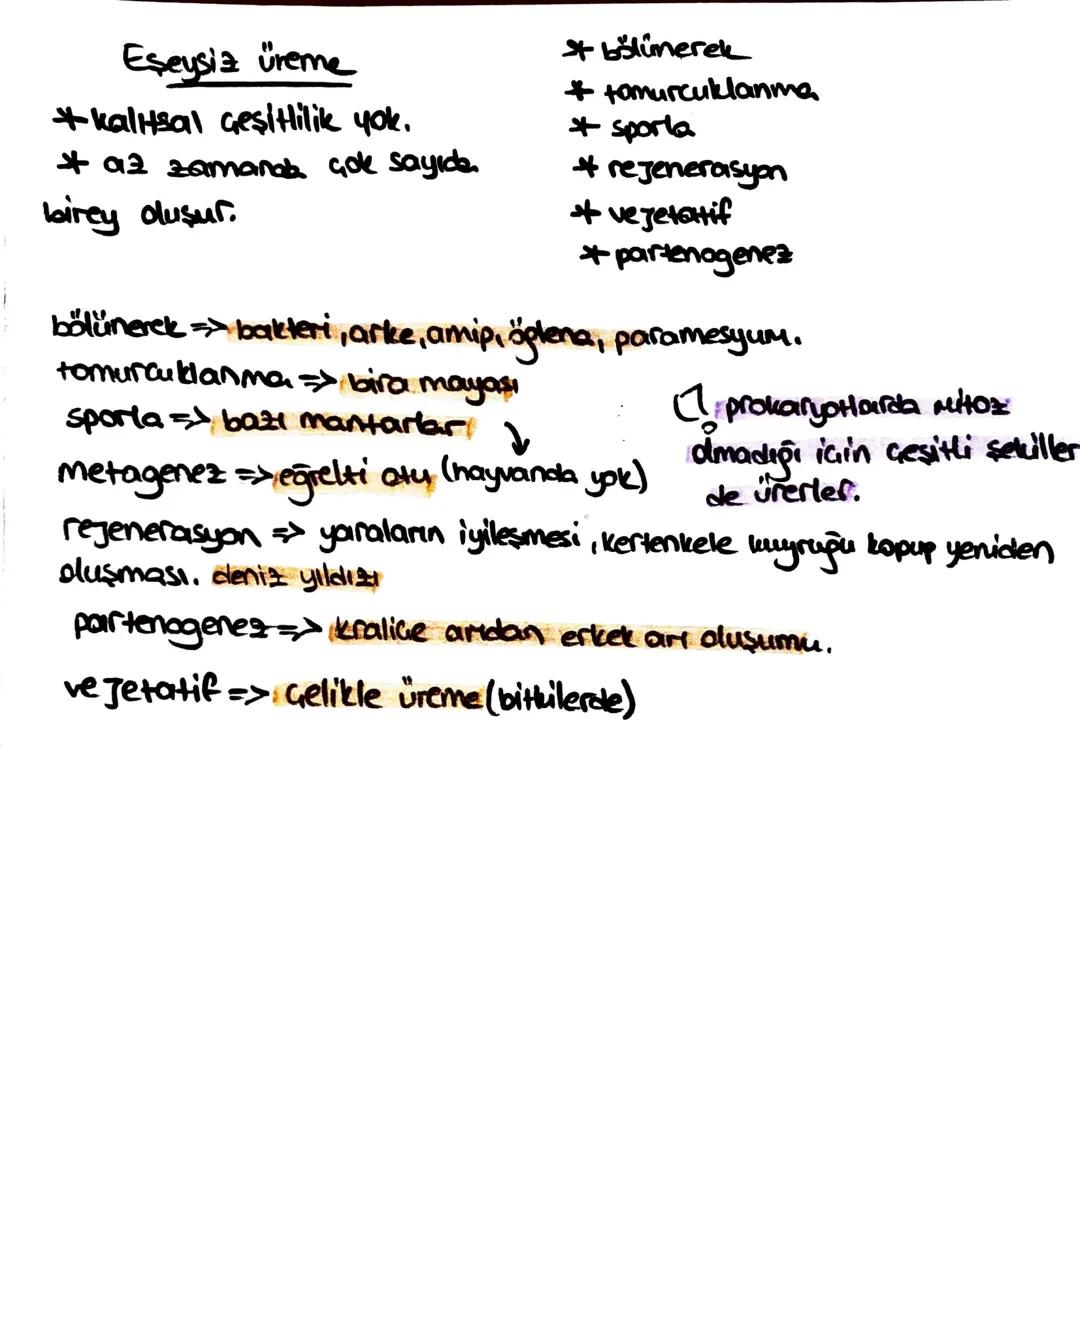 Eşeysiz üreme
* kalıtsal çeşitlilik yok.
* az zamanda çok sayıda
birey oluşur.
* bölünerek
* tomurcuklanma
* sporla
* rejenerasyon
* vejetatif
* partenogenez
bölünerek => bakteri, arke, amip, öglena, paramesyum.
tomurcuklanma => bira mayası
sporla => bazı mantarlar
metagenez => eğrelti otu (hayvanda yok)
prokaryotlarda mitoz
olmadığı için çeşitli şekiller
de ürerler.
rejenerasyon => yaraların iyileşmesi, kertenkele kuyruğu kopup yeniden
oluşması. deniz yıldızı
partenogenez => kraliçe arıdan erkek arı oluşumu.
vejetatif => çelikle üreme (bitkilerde)